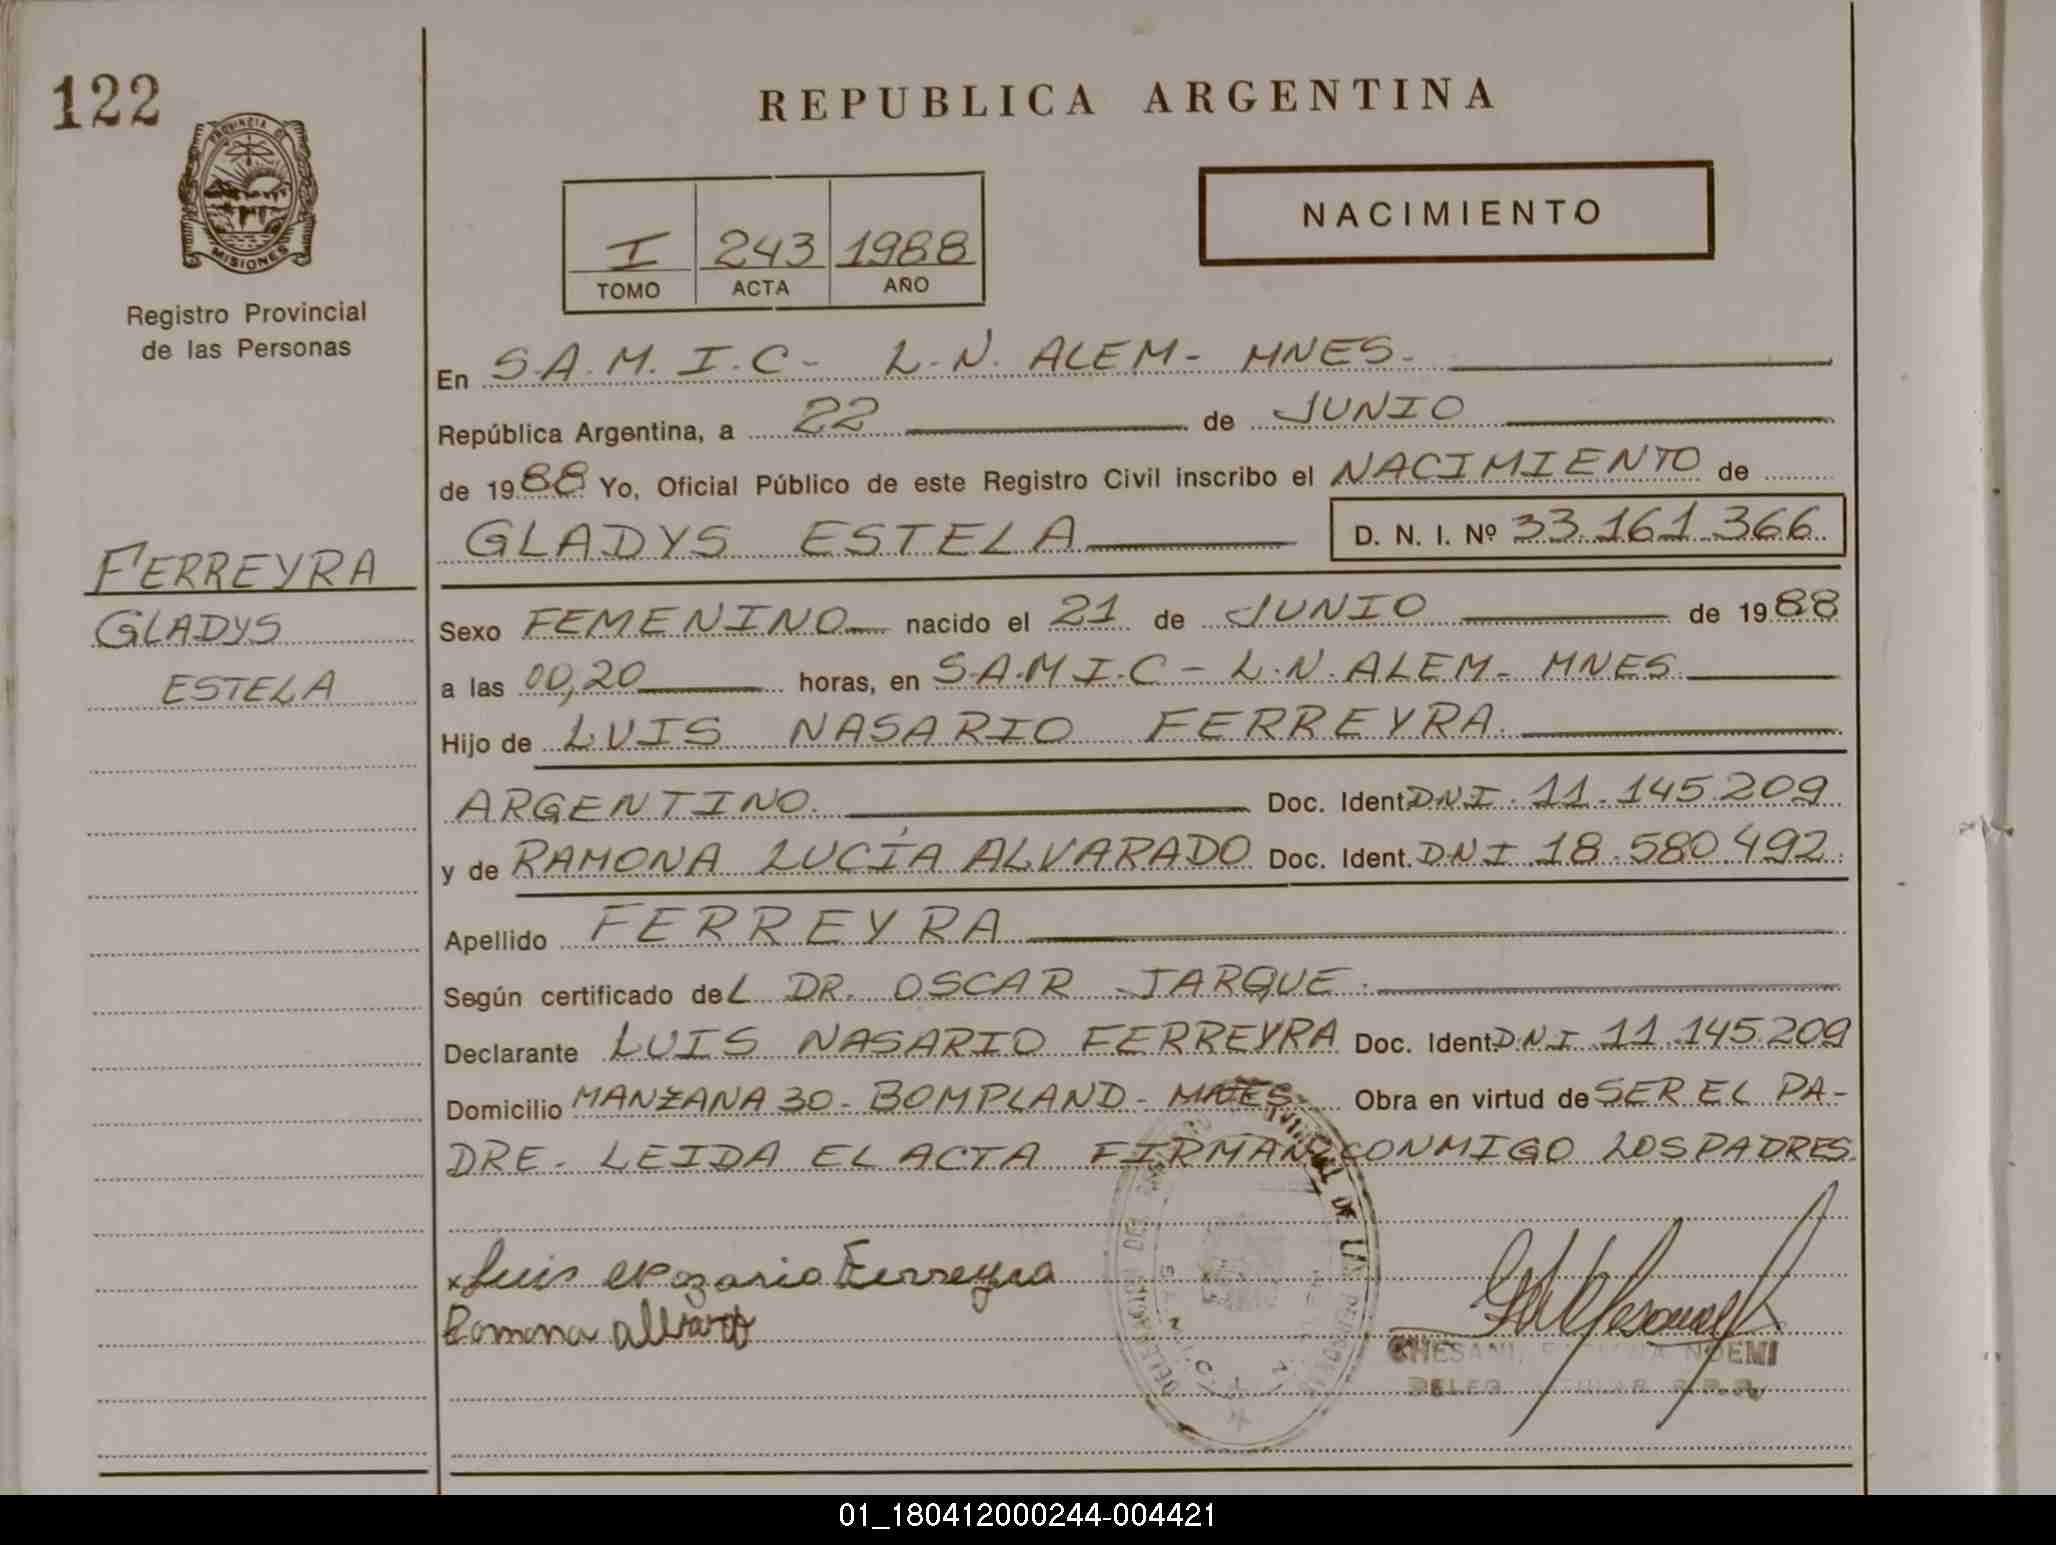 122
PROVINCIA DE
MISIONES
Registro Provincial
de las Personas
FERREYRA
GLADYS
ESTELA
REPUBLICA ARGENTINA
I 243 1988
TOMO ACTA AÑO
NACIMIENTO
En S.A.M.I.C - L.N. ALEM - MNES.
República Argentina, a 22 de JUNIO
de 1988 Yo, Oficial Público de este Registro Civil inscribo el NACIMIENTO de
GLADYS ESTELA D. N. I. Nº 33.161.366
Sexo FEMENINO nacido el 21 de JUNIO de 1988
a las 00,20 horas, en S.A.M.I.C - L.N. ALEM - MNES
Hijo de LUIS NASARIO FERREYRA
ARGENTINO. Doc. Ident. DNI. 11.145.209
y de RAMONA LUCÍA ALVARADO Doc. Ident. DNI 18.580.492
Apellido FERREYRA
Según certificado del DR. OSCAR JARQUE.
Declarante LUIS NASARIO FERREYRA Doc. Ident. DNI 11.145.209
Domicilio MANZANA 30 - BOMPLAND - MNES. Obra en virtud de SER EL PA-
DRE. LEIDA EL ACTA FIRMAN CONMIGO LOS PADRES.
Luis Nazario Ferreyra
Ramona
NOEMI
01_180412000244-004421